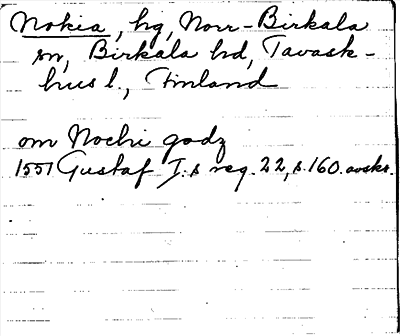 Nokia, hg, Norr-Birkala
sn, Birkala hd, Tavast-
hus l., Finland
om Nochi godz
1551 Gustaf I:s reg. 22, s. 160. avskr.